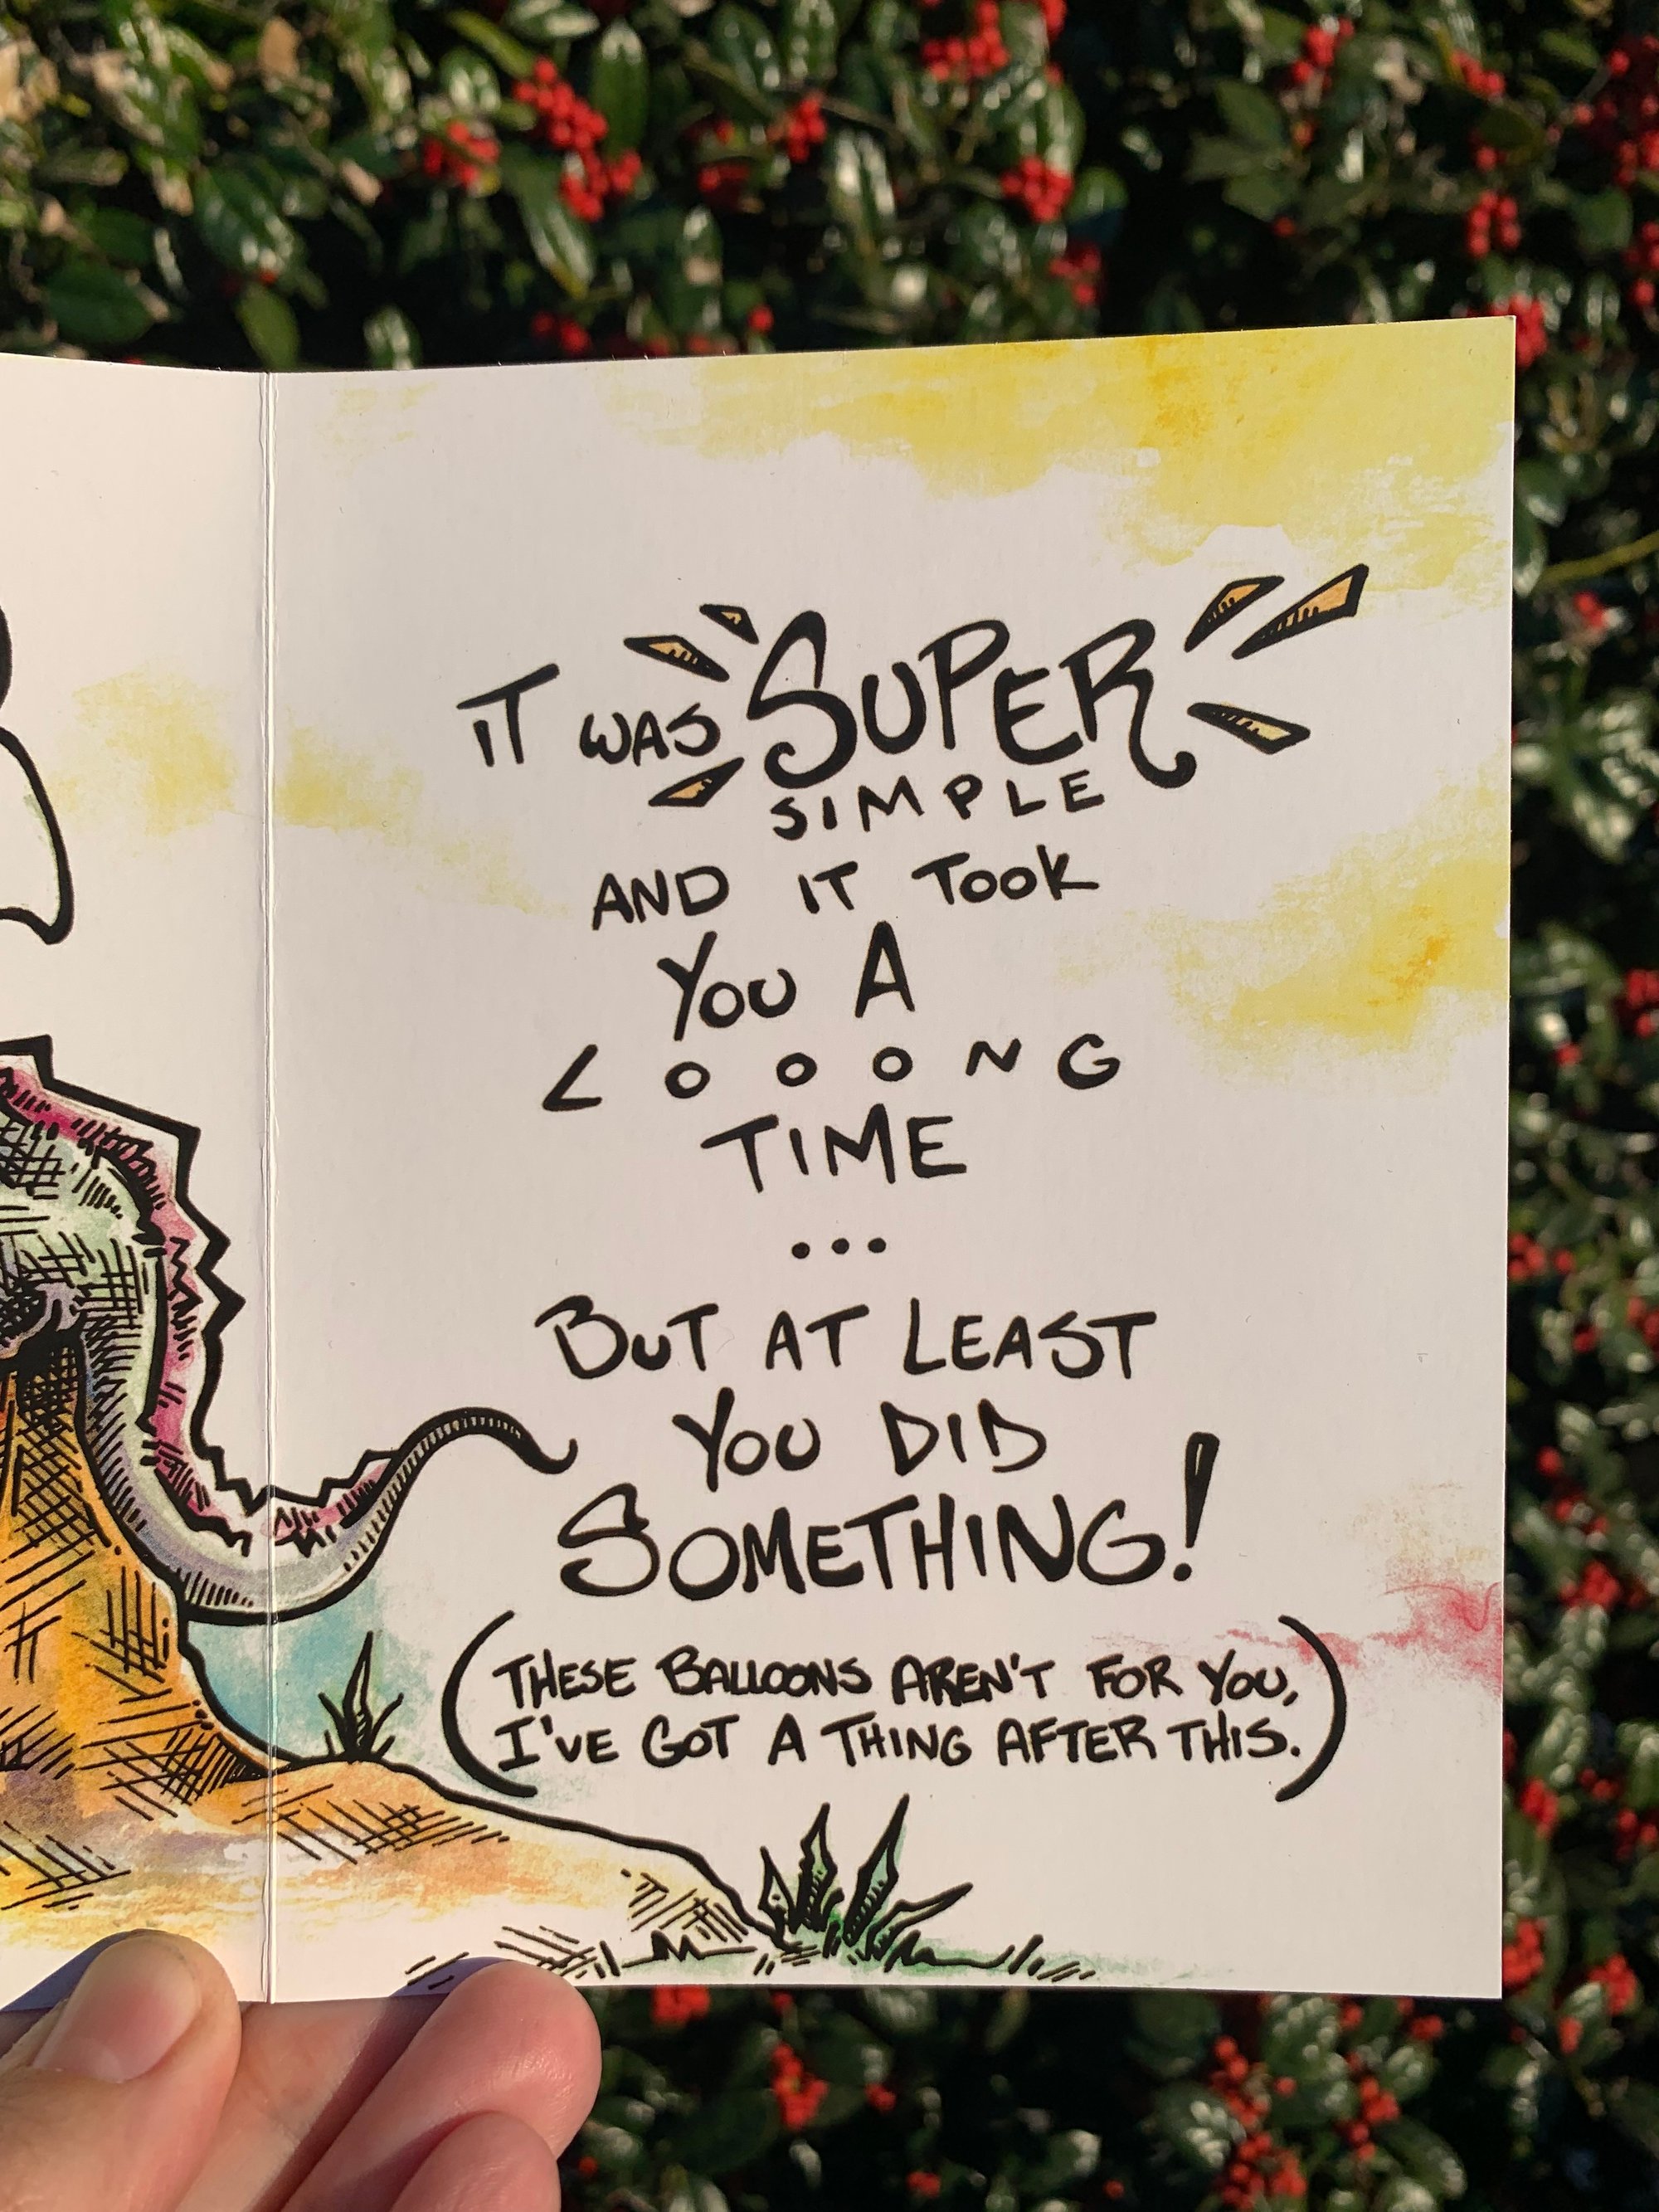 IT WAS SUPER
SIMPLE
AND IT TOOK
YOU A
LOOONG
TIME
...
BUT AT LEAST
YOU DID
SOMETHING!
(THESE BALLOONS AREN'T FOR YOU,
I'VE GOT A THING AFTER THIS.)